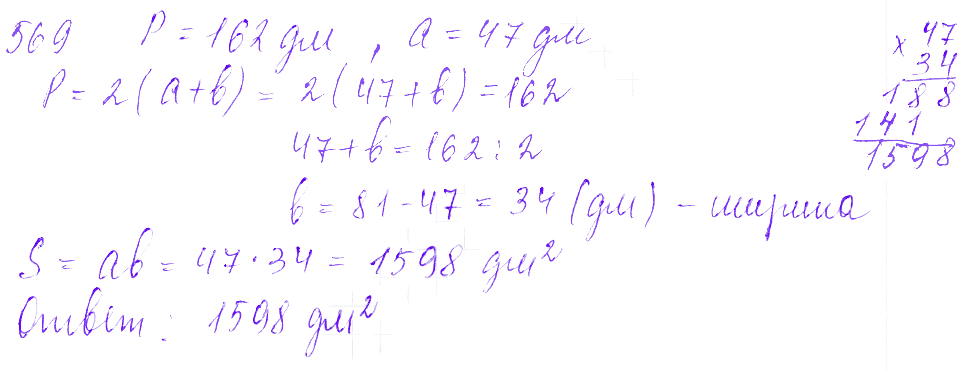 569 P = 162 дм, a = 47 дм
P = 2(a+b) = 2(47+b) = 162
47+b = 162 : 2
b = 81-47 = 34 (дм) - ширина
S = ab = 47·34 = 1598 дм²
Ответ: 1598 дм²
47
x 34
188
141
1598